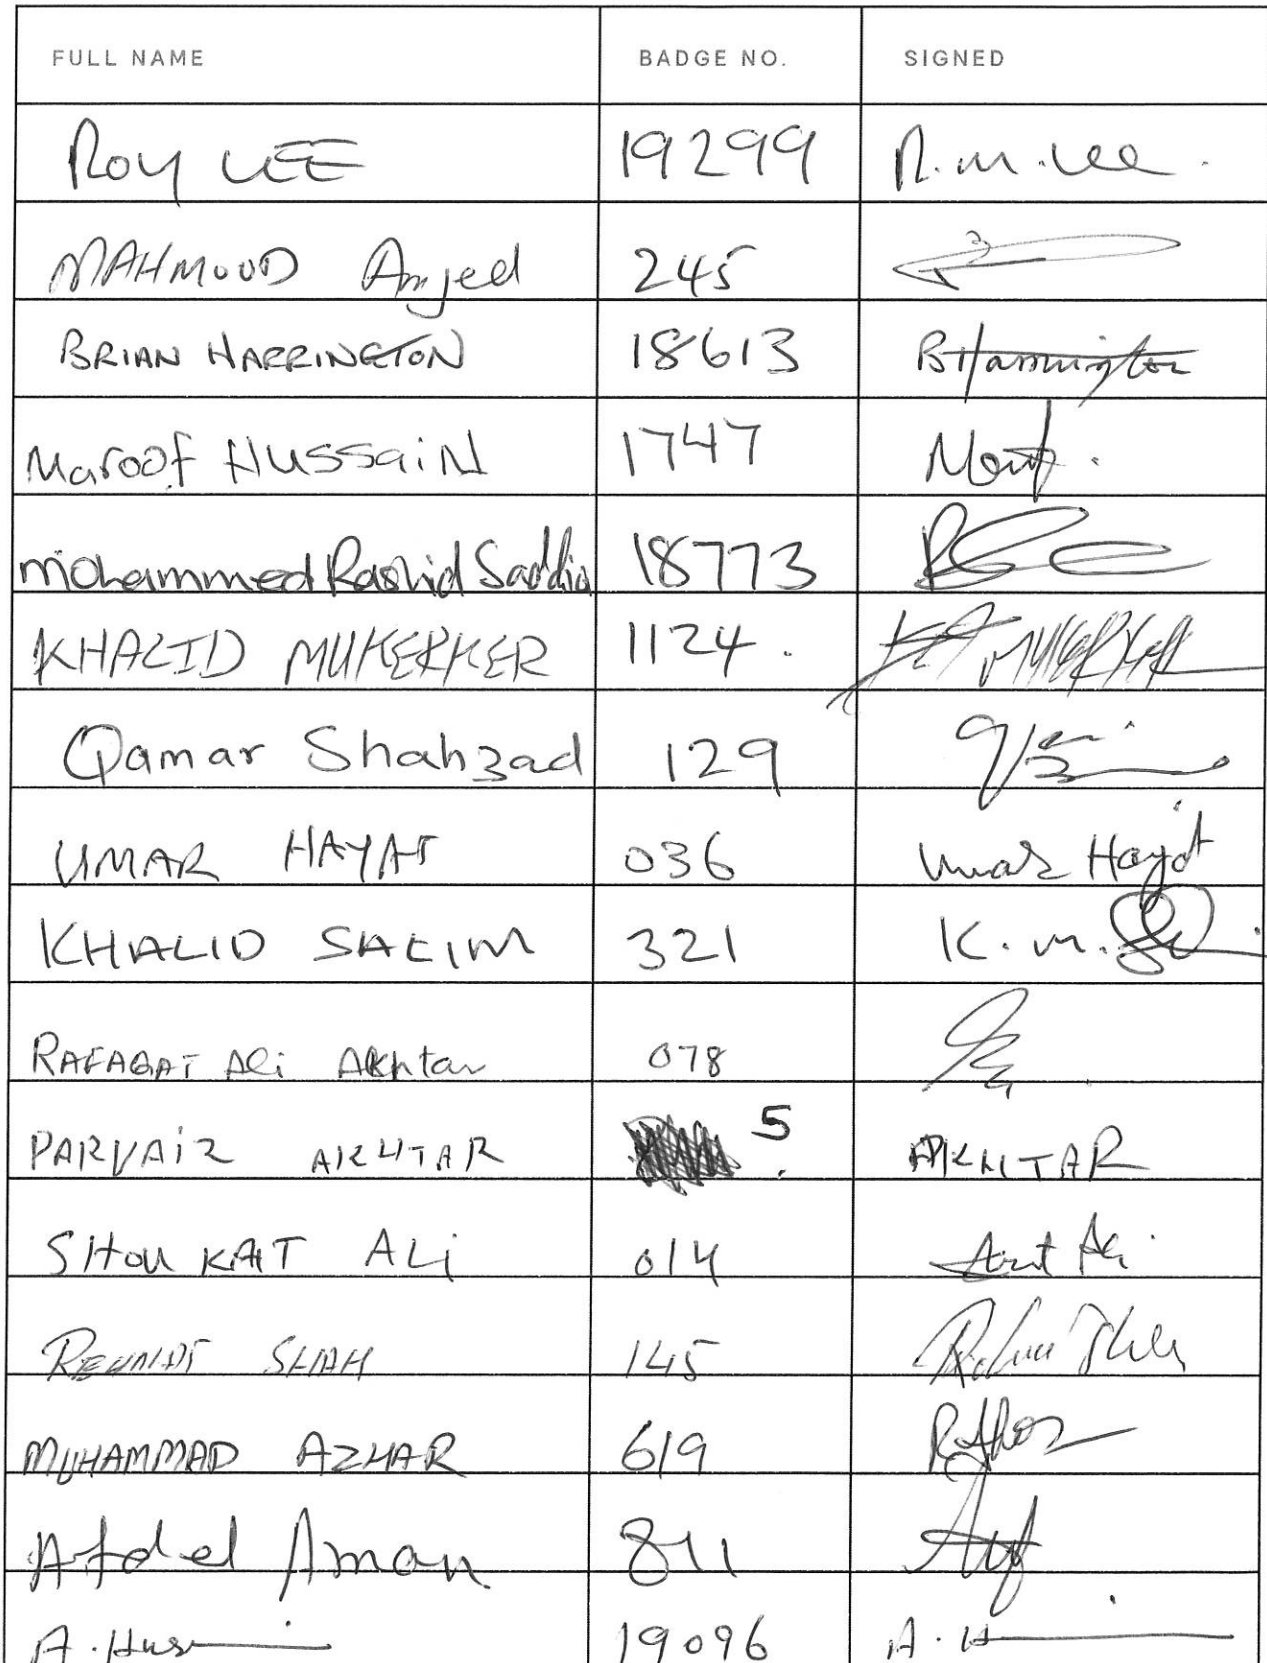 FULL NAME BADGE NO. SIGNED
Roy LEE 19299 R.M.Lee.
MAHMOOD Amjed 245
BRIAN HARRINGTON 18613 BHarrington
Maroof HUSSaiN 1747
mohammed Rashid Saddiq 18773
KHALID MUKERKER 1124. MUKERKER
Qamar Shahzad 129
UMAR HAYAT 036 Umar Hayat
KHALID SALIM 321 K.M.
RAFAQAT Ali Akhtar 078
PARVAiZ AKHTAR 5 AKHTAR
SHOUKAT ALi 014 Ali
SHAH 145
MUHAMMAD AZHAR 619
Afdel Aman 811
A. 19096 A. H